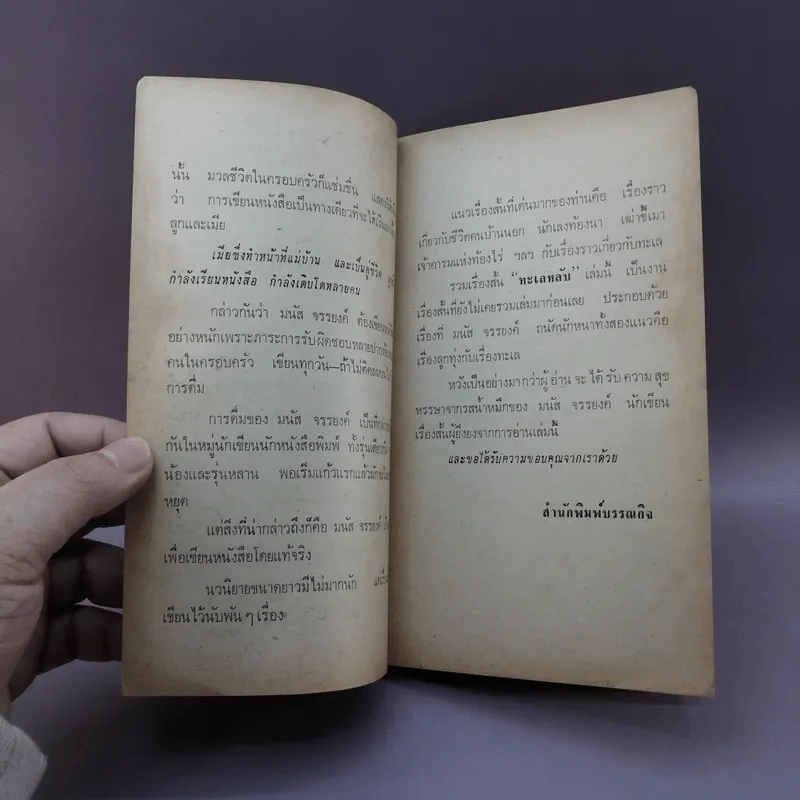 นั้น มวลชีวิตในครอบครัวก็แช่มชื่น
ว่า การเขียนหนังสือเป็นทางเดียวที่จะได้เงิน
ลูกและเมีย
เมียซึ่งทำหน้าที่แม่บ้าน และเป็นคู่ชีวิต
กำลังเรียนหนังสือ กำลังเติบโตหลายคน
กล่าวกันว่า มนัส จรรยงค์ ต้องเขียน
อย่างหนักเพราะภาระการรับผิดชอบหลายปาก
คนในครอบครัว เขียนทุกวัน—ถ้าไม่ติด
การดื่ม
การดื่มของ มนัส จรรยงค์ เป็นที่
กันในหมู่นักเขียนนักหนังสือพิมพ์ ทั้งรุ่นเดียวกัน
น้องและรุ่นหลาน พอเริ่มแก้วแรกแล้วมัก
หยุด
แต่สิ่งที่น่ากล่าวถึงก็คือ มนัส จรรยงค์
เพื่อเขียนหนังสือโดยแท้จริง
นวนิยายขนาดยาวมีไม่มากนัก
เขียนไว้นับพัน ๆ เรื่อง
แนวเรื่องสั้นที่เด่นมากของท่านคือ เรื่องราว
เกี่ยวกับชีวิตคนบ้านนอก นักเลงท้องนา เฒ่าขี้เมา
เจ้าคารมแห่งท้องไร่ ฯลฯ กับเรื่องราวเกี่ยวกับทะเล
รวมเรื่องสั้น "ทะเลหลับ" เล่มนี้ เป็นงาน
เรื่องสั้นที่ยังไม่เคยรวมเล่มมาก่อนเลย ประกอบด้วย
เรื่องที่ มนัส จรรยงค์ ถนัดนักหนาทั้งสองแนวคือ
เรื่องลูกทุ่งกับเรื่องทะเล
หวังเป็นอย่างมากว่าผู้อ่าน จะ ได้ รับ ความ สุข
หรรษาจากรสน้ำหมึกของ มนัส จรรยงค์ นักเขียน
เรื่องสั้นผู้ยิ่งยงจากการอ่านเล่มนี้
และขอได้รับความขอบคุณจากเราด้วย
สำนักพิมพ์บรรณกิจ